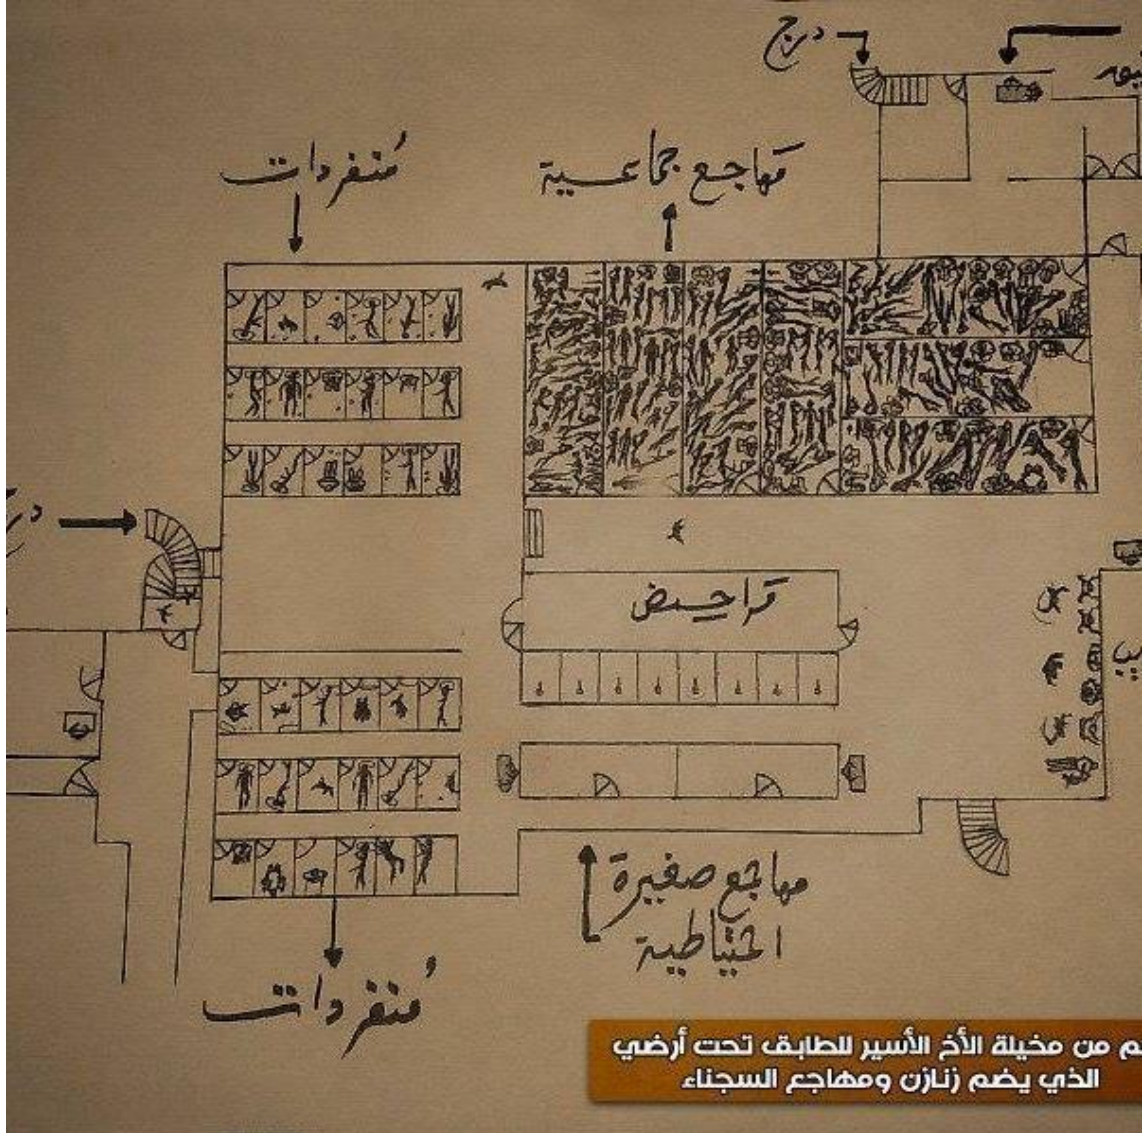 درج
منفردات
مهاجع جماعية
مراحيض
مهاجع صغيرة
احتياطية
مُنفردات
من مخيلة الأخ الأسير للطابق تحت أرضي
الذي يضم زنازن ومهاجع السجناء